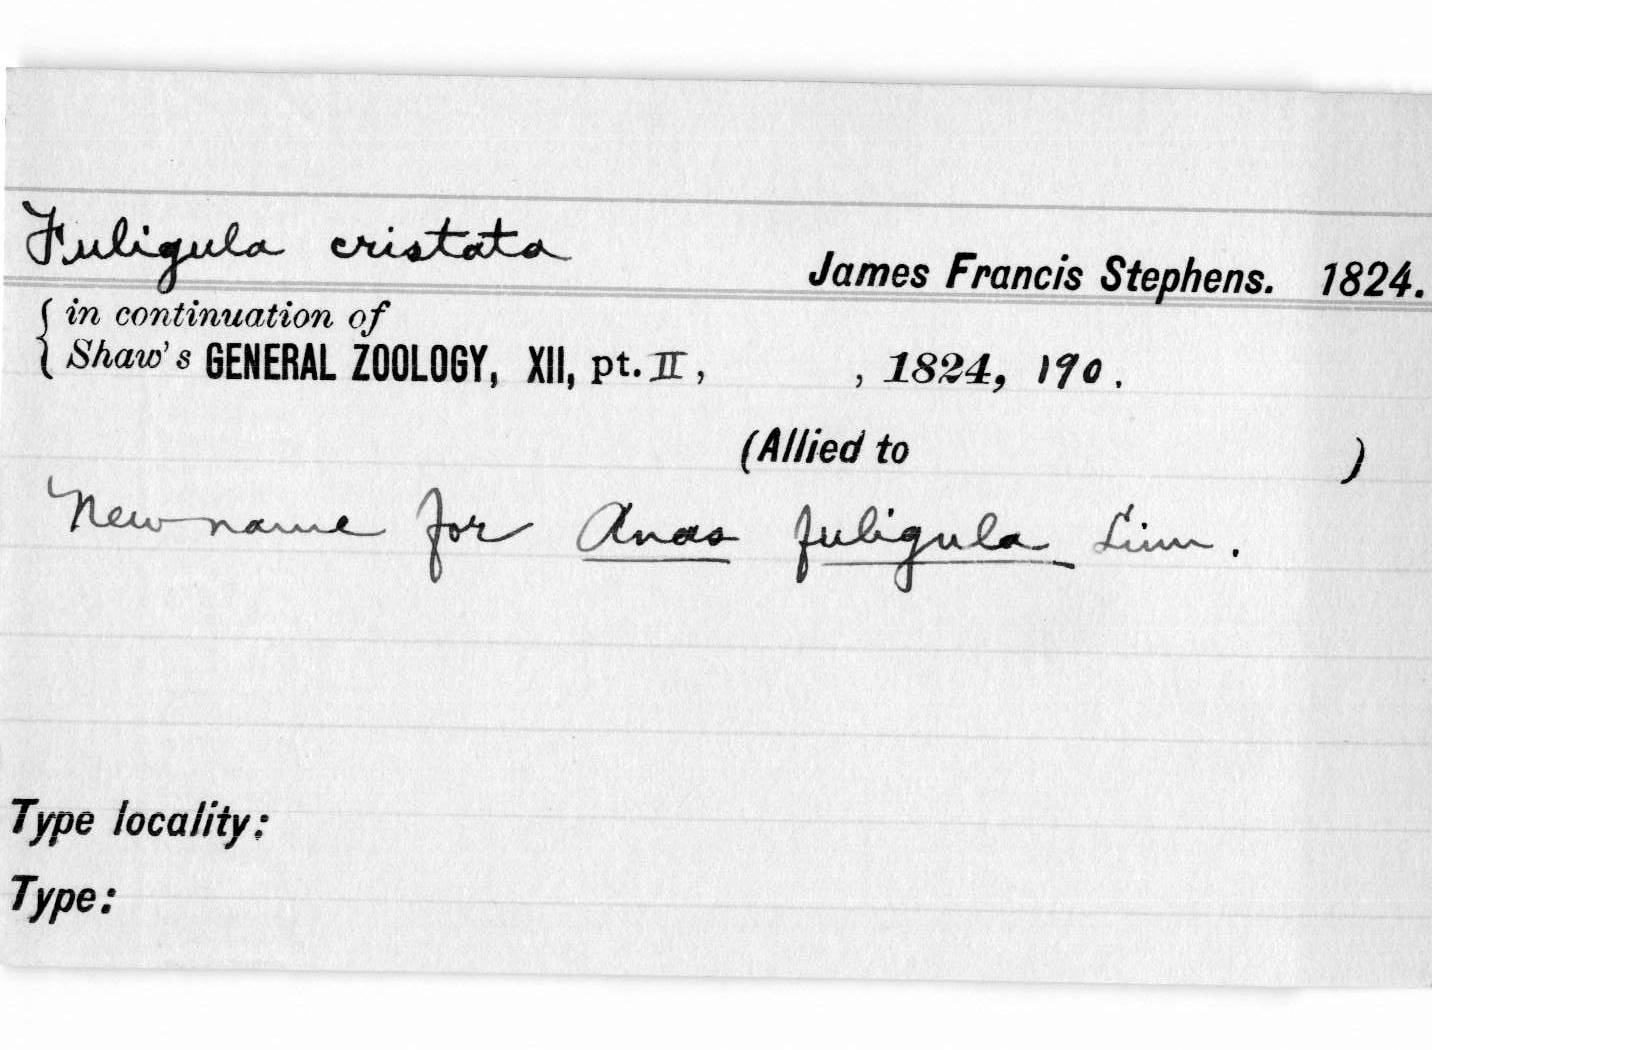 Fuligula cristata
James Francis Stephens. 1824.
{ in continuation of
Shaw's GENERAL ZOOLOGY, XII, pt. II, , 1824, 190.
(Allied to )
New name for Anas fuligula Linn.
Type locality:
Type: